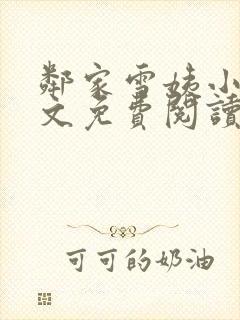 鄰家雪姨小
文免費閱讀
可可的奶油